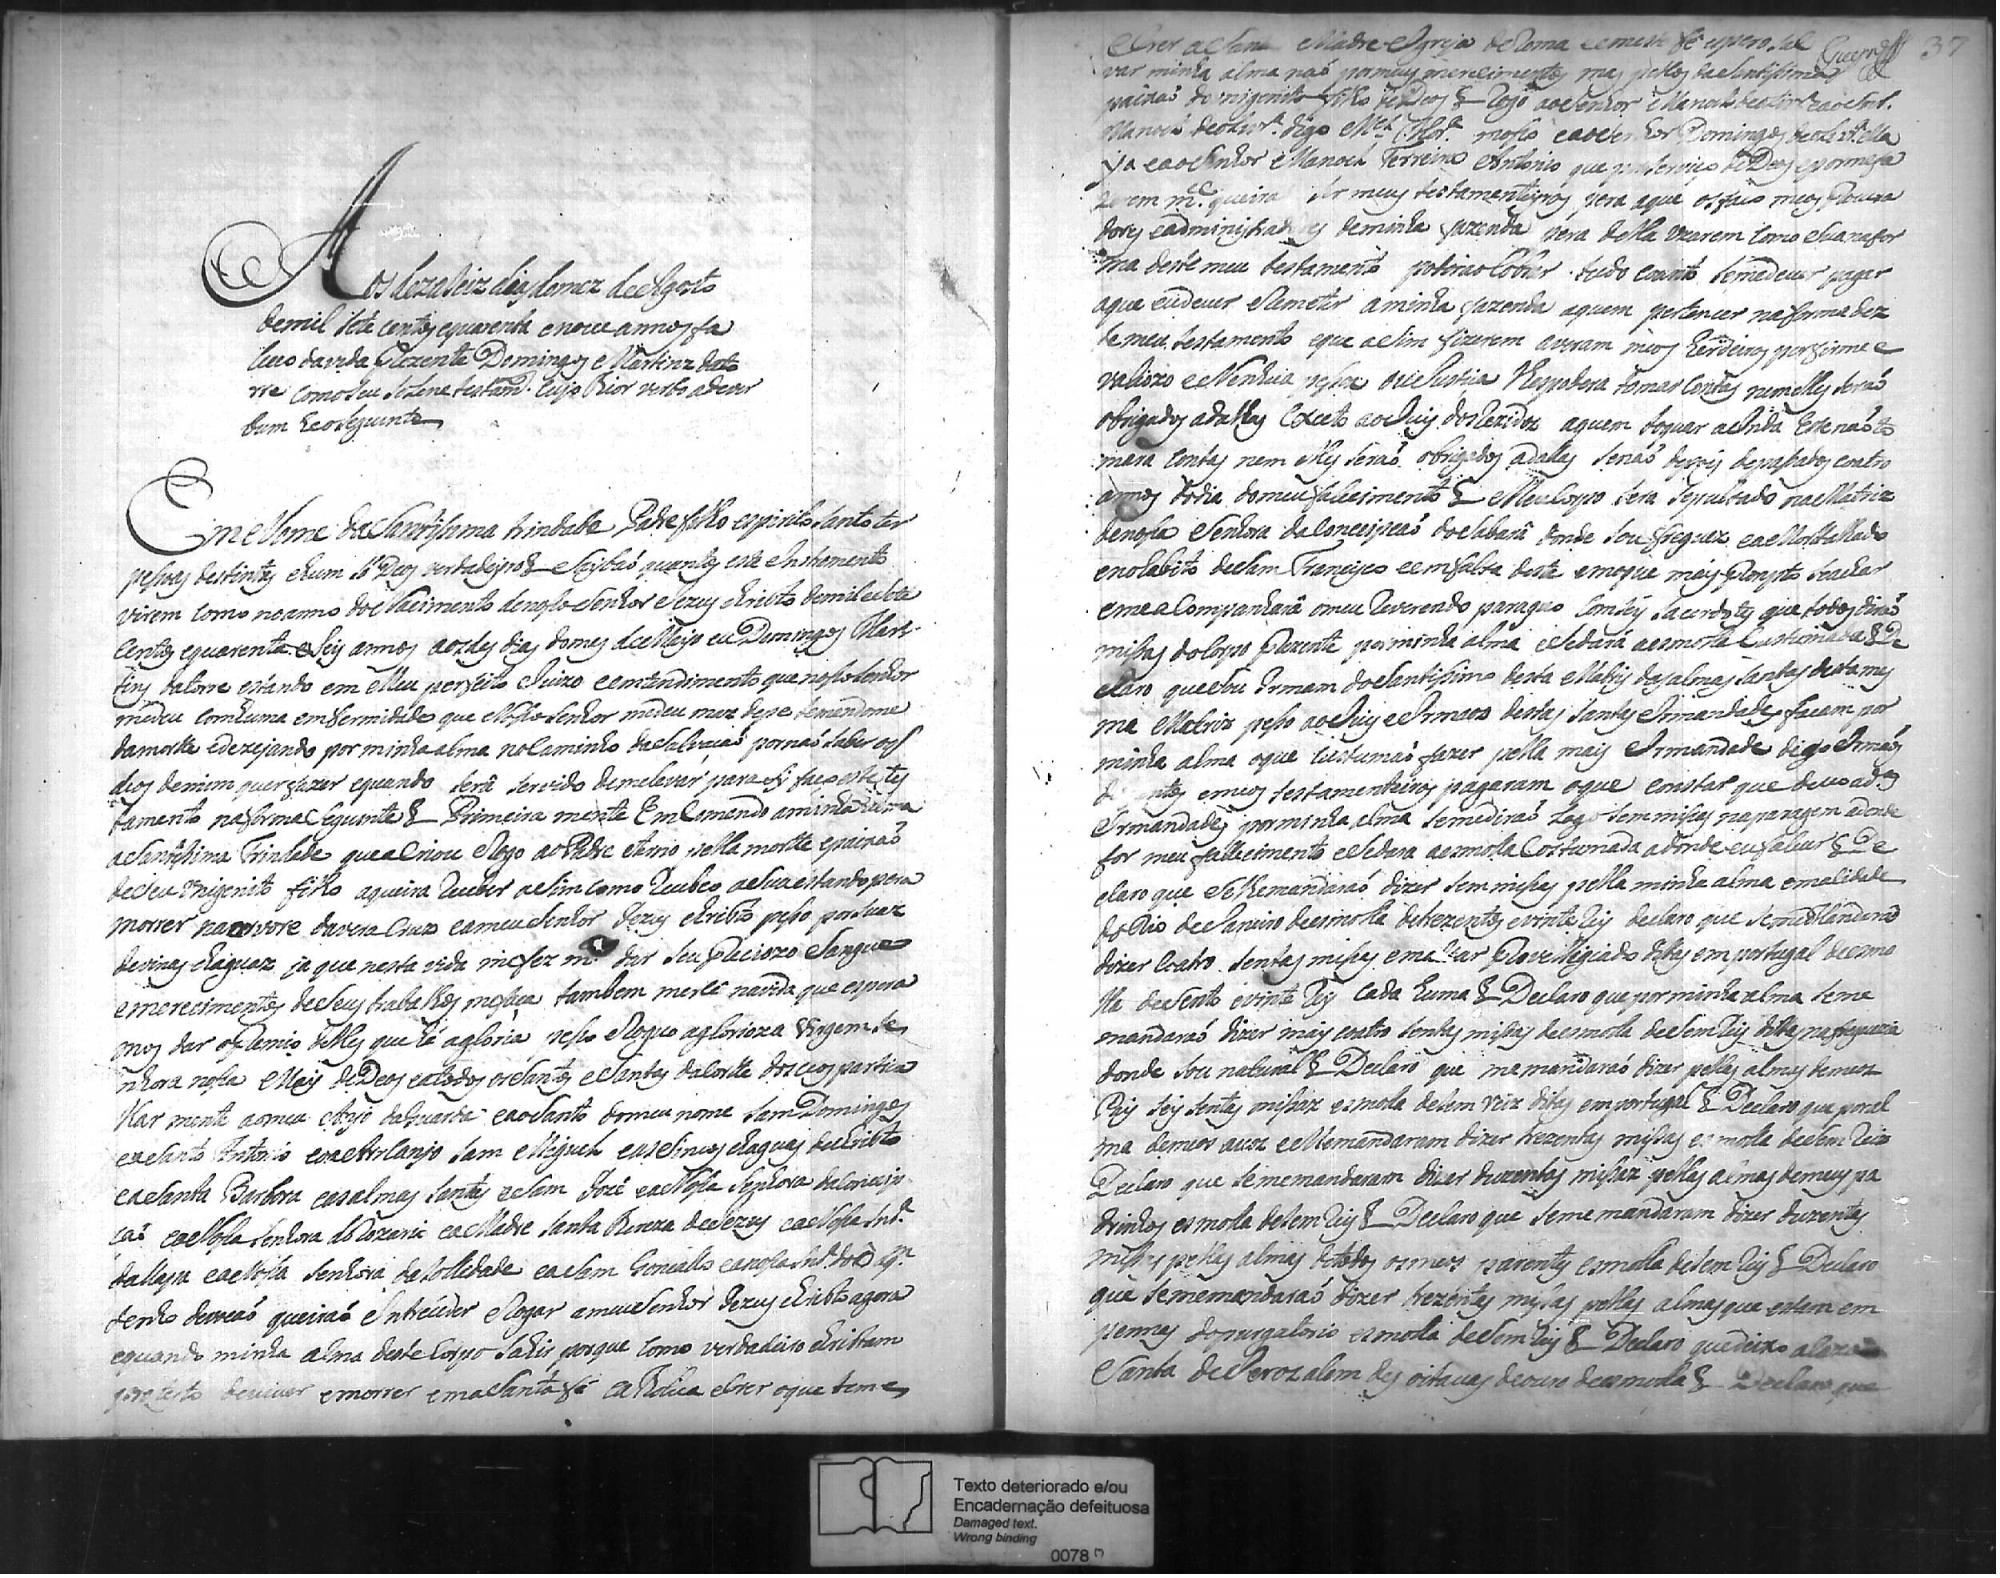 Aos dezaseiz dias do mez de Agosto
de mil sete centos e quarenta e noue annos fa
leceo da vida Prezente Domingos Martinz da to
rre com o seu solene testam.to cujo theor verbo ad ver
bum he o seguinte
Em Nome da Santissima trindade Padre filho espirito Santo tres
pesoas destintas e hum só Deos verdadeyro Saybaó quantos este Instromento
virem como no anno do Nacimento de noso Senhor Jezus Christo de mil e sete
Centos e quarenta e Seis annos aos des dias do mes de Mayo eu Domingos Mar
tins da torre estando em Meu perfeito Juizo e emtendimento que noso Senhor
me deu com huma emfermidade que Noso Senhor me deu
da morte e dezejando por minha alma no Caminho da Salvacaó por naó saber o q
deos de mim quer fazer e quando será servido de me levar para Sy faco este tes
tamento na forma Seguinte Primeira mente Emcomendo a minha alma
a Santissima Trindade que a Criou e Rogo ao Padre eterno pella mortte e paixaó
de Seu Unigenito filho a queira receber asim como recebeo a Sua estando pera
morrer na arvore da vera Cruz e a meu Senhor Jezus Christo peso por suas
devinas chaguas ja que nesta vida me fez m.ce dar Seu preciozo Sangue
e merecimentos de Seus trabalhos me faca tambem merce na vida que espera
mos dar o premio delles que hé a gloria peso e Roguo a glorioza Virgem Se
nhora nosa May de Deos e a todos os Santos e Santas da Corte do Ceo partiCu
llar mente ao meu Anjo da Guarda e ao Santo do meu nome Sam Domingos
e a Santo Antonio e ao Arcanjo Sam Miguel e as Sinco chaguas de Christo
e a Santa Barbora e as almas Santas e a Sam Jozé e a Nosa Senhora da Conceip
caó e a Nosa Senhora do Rozario e a Madre Santa Thereza de Jezus e a Nosa Snr.a
da Lapa e a Nosa Senhora da Solledade e a Sam Goncallo e a nosa Snr.a do Ó a q.m
tenho devocaó queiraó Intreceder e Rogar a meu Senhor Jezus Christo agora
e quando minha alma deste Corpo Sahir porque como verdadeiro Christam
protesto de viver e morrer em a Santa fé Catholica e crer o que tem e
e Crer a Santa Madre Igreja de Roma e em esta fé espero Sal Guerra 37
var minha alma naó por meus merecimentos mas pellos da Santissima
paixaó do unigenito filho de Deos Rogo ao Senhor Manoel
Manoel de oliur.a digo M.el noso e ao Senhor Domingos
e ao Senhor Manoel Ferreira Antonio que por servico de Deos e por me fa
zerem m.ce queiraó Ser meus testamenteiros pera a que os faco meus Procura
dores e administradores de minha fazenda pera della uzarem como e na for
ma deste meu testamento poderaó Cobrar tudo coanto Se me dever pagar
a que eu dever e Remeter a minha fazenda a quem pertencer na forma dez
te meu testamento e que asim fizerem averam meos herdeiros por firme e
valiozo e Nenhua pesoa ou Justica lhes podera tomar Contas nem elles Seraó
obrigados a dallas Exceto ao Juis dos Rezidos a quem toquar e ainda Este naó to
mara Contas nem elles Seraó obrigados a dallas Senaó depois de pasados coatro
annos do dia do meu falecimento Meu Corpo Será Sepultado na Matriz
de nosa Senhora da Conceipcaó do Sabará donde Sou freguez e amortalhado
em o habito de Sam Francisco e em falta deste em o que mais prompto Se achar
e me aCompanhará o meu Reverendo paroquo Com Seis Sacerdotes que todos diraó
misas de Corpo Prezente por minha alma e Se dará a esmolla Custumada De
claro que Sou Irmam do Santissimo desta Matris das almas Santas desta mes
ma Matris peso ao Juis e Irmaos destas Santas Irmandades facam por
minha alma o que custumaó fazer pella mais Irmandade digo Irmaós
e meos testamenteiros pagaram o que constar que devo as d.as
Irmandades por minha alma Se me diraó Logo Sem misas na paragem adonde
for meu fallecimento e Se dara a esmolla Costumada adonde eu faleser De
claro que Se me mandaraó dizer Sem misas pella minha alma em a Cidade
do Rio de Janeiro de esmolla de trezentos e vinte reis declaro que Se me Mandaraó
dizer Coatro Sentas misas em altar Previlligiado ditas em portugal de esmo
lla de Sento e vinte Reis Cada huma Declaro que por minha alma Se me
mandaraó dizer mais coatro Sentas misas de esmolla de Sem Reis ditas na freguezia
donde Sou natural Declaro que me mandaraó dizer pellas almas de meus
Pais Seis Sentas misas esmolla de Sem reis ditas em portugal Declaro que por al
ma de meos avos Se me mandaram dizer trezentas misas esmolla de Sem Reis
Declaro que Se me mandaram dizer duzentas misas pellas almas de meus pa
drinhos esmolla de Sem Reis Declaro que Se me mandaram dizer duzentas
misas pellas almas de todos os meos parentes esmolla de Sem Reis Declaro
que Se me mandaraó dizer trezentas misas pellas almas que estam em
pennas do purgatorio esmolla de Sem Reis Declaro que deixo a Caza
Santa de Jerozalem des oitavas de ouro de esmolla Declaro que
Texto deteriorado e/ou
Encadernação defeituosa
Damaged text.
Wrong binding
0078